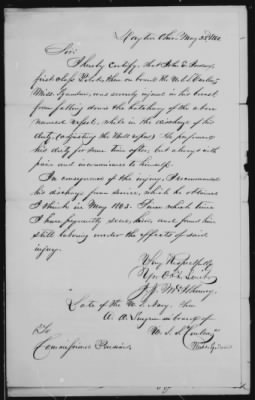 Dayton Ohio May 3d 1882
Sir.
I hereby certify, that John E.
first class on board the U.S.S.
Miss. Squadron, was severely injured in his breast
from falling down the hatchway of the above
named vessel, while in the discharge of his
duty, (adjusting the ropes) He performed
his duty for some time after, but always with
pain and inconvenience to himself.
In consequence of this injury, I recommended
his discharge from service, which he obtained
I think in May 1863. Since which time
I have frequently seen him, and found him
still laboring under the effects of said
injury.
Very Respectfully
Your Obt. Servt.
J.
Late of the U.S. Navy, then
A. A. Surgeon on board of
U.S.S.
To
Commissioner Pensions.